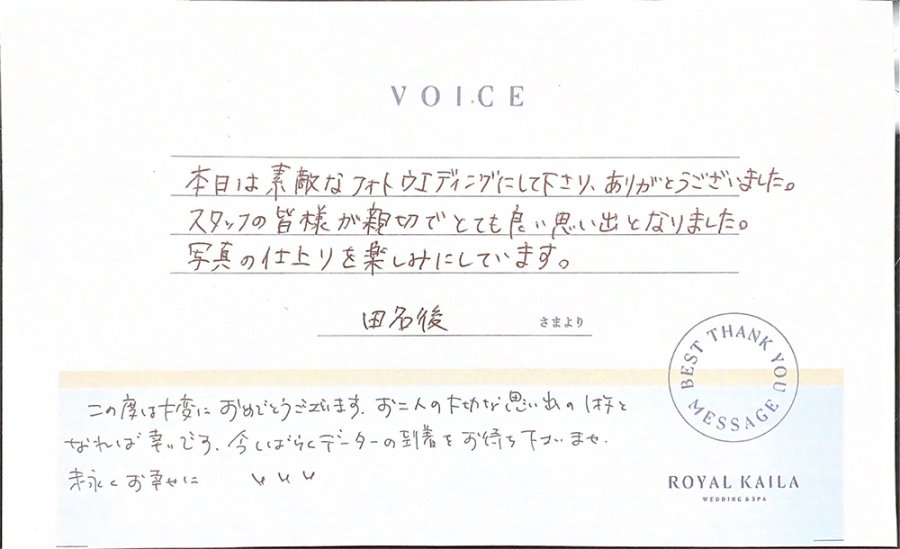 VOICE
本日は素敵なフォトウエディングにして下さり、ありがとうございました。
スタッフの皆様が親切でとても良い思い出となりました。
写真の仕上りを楽しみにしています。
田名後 さまより
BEST THANK YOU MESSAGE
この度は大変におめでとうございます。お二人の大切な思い出の1枚と
なれば幸いです。今しばらくデーターの到着をお待ち下いませ.
末永くお幸せに
ROYAL KAILA
WEDDING & SPA